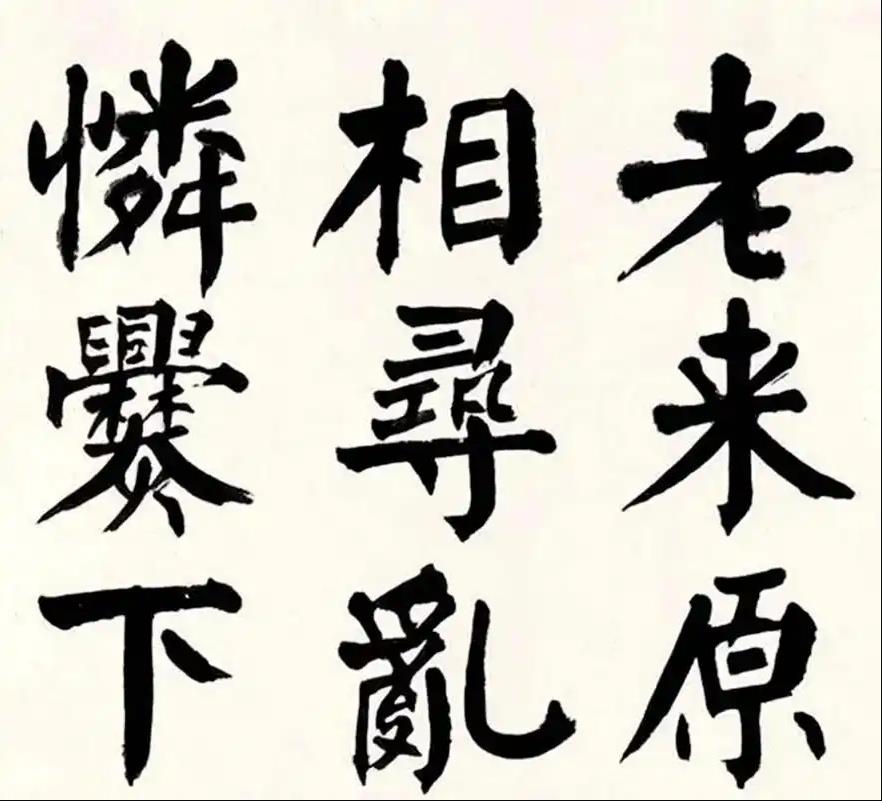 老来原
相尋亂
憐爨下